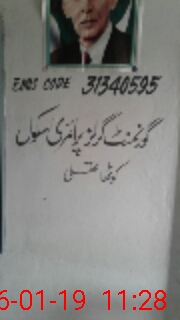 EMIS CODE 31340595
گورنمنٹ گرلز پرائمری سکول
کوٹھا
6-01-19 11:28